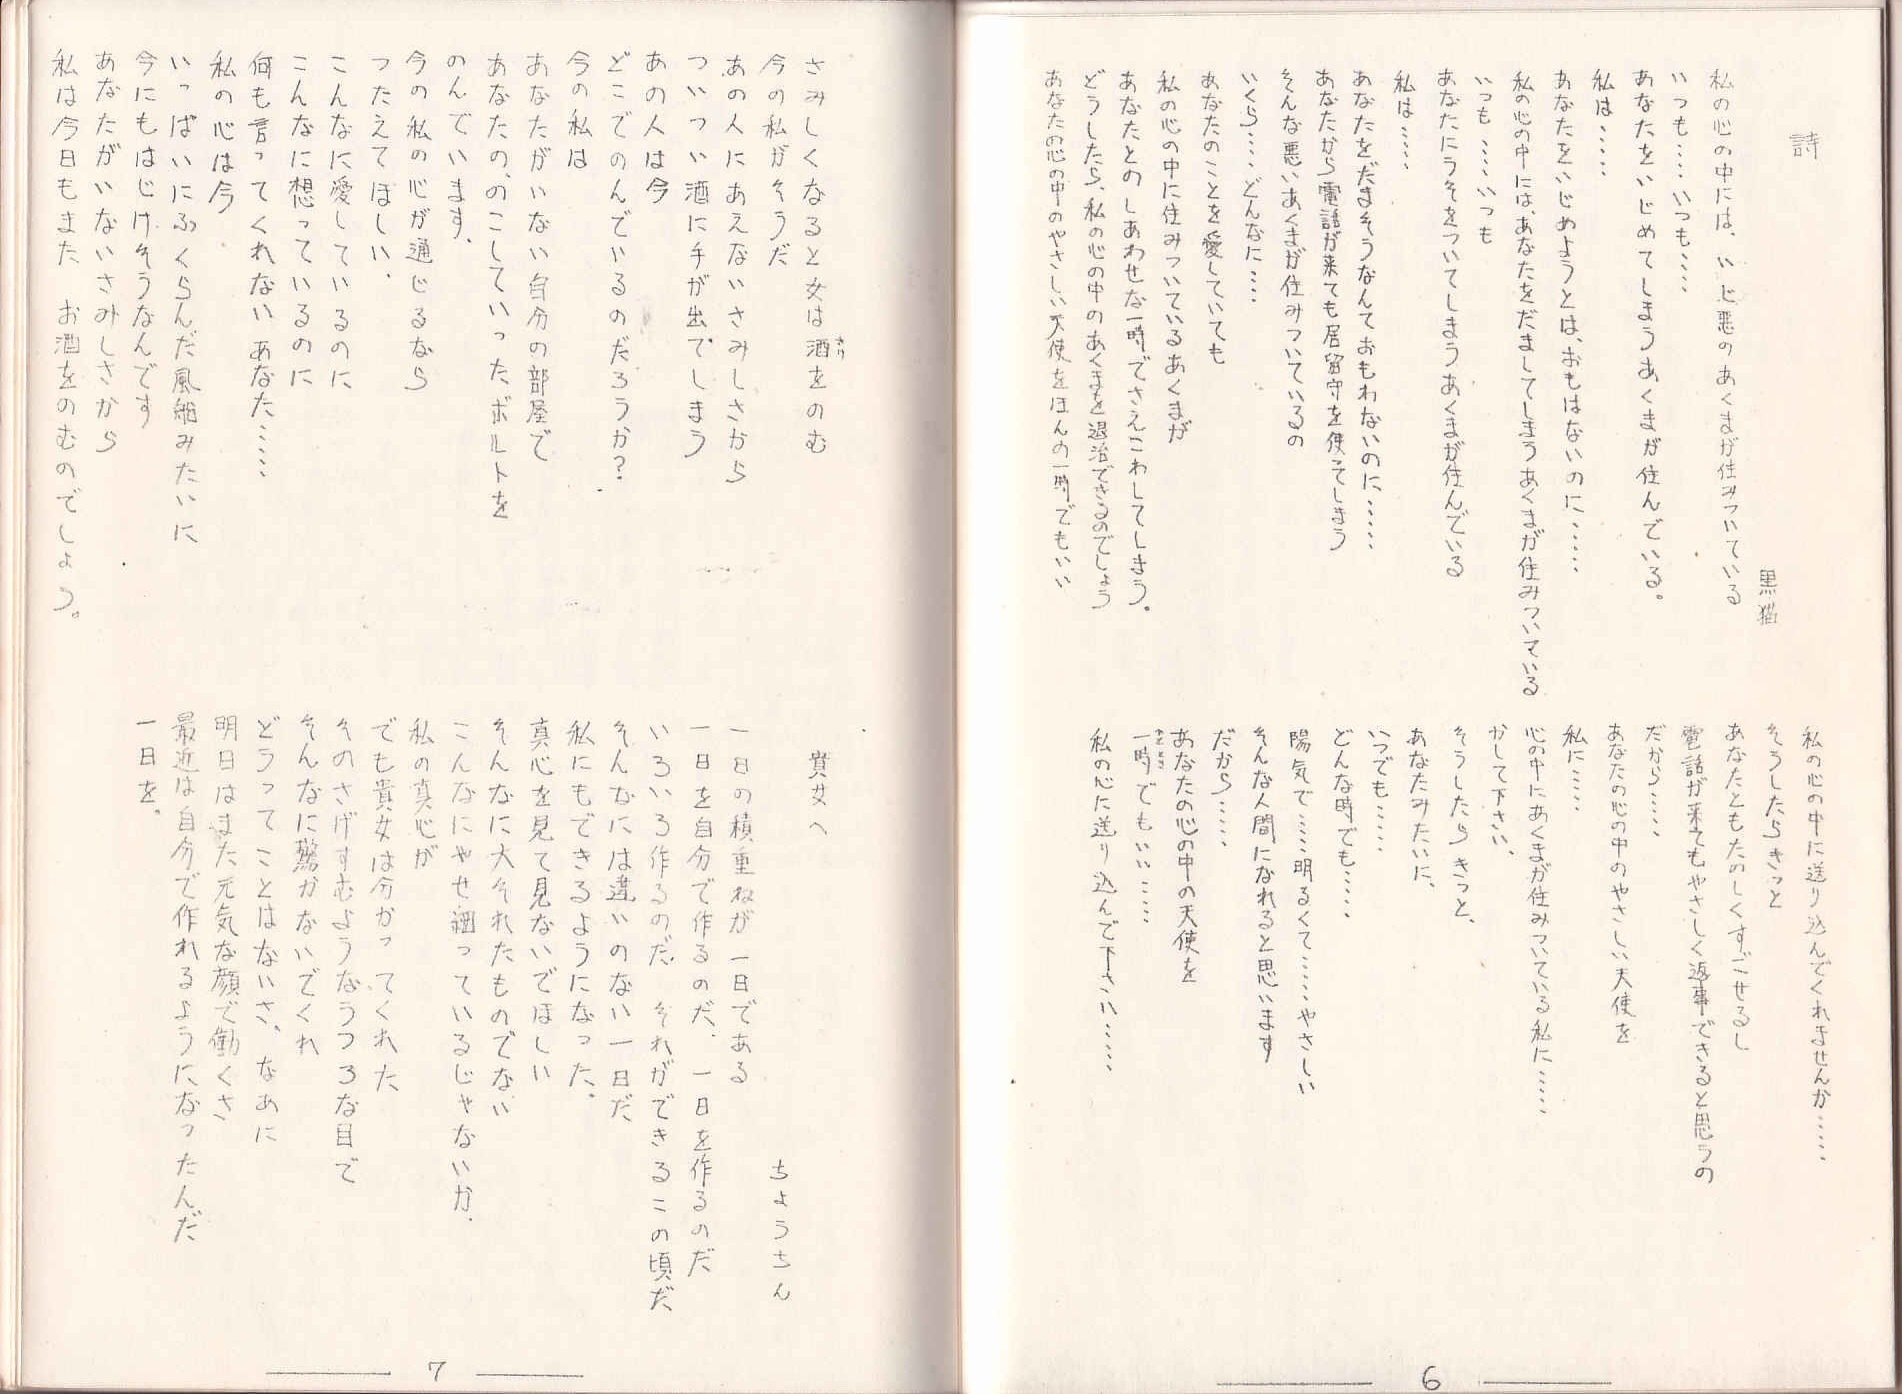 詩
黒猫
私の心の中には、いじ悪のあくまが住みついている
いつも‥‥いつも‥‥
あなたをいじめてしまうあくまが住んでいる。
私は‥‥‥
あなたをいじめようとは、おもはないのに‥‥‥
私の心の中には、あなたをだましてしまうあくまが住みついている
いつも‥‥いつも
あなたにうそをついてしまうあくまが住んでいる
私は‥‥‥
あなたをだまそうなんておもわないのに‥‥‥
あなたから電話が来ても居留守を使ってしまう
そんな悪いあくまが住みついているの
いくら‥‥どんなに‥‥
あなたのことを愛していても
私の心の中に住みついているあくまが
あなたとの しあわせな一時でさえこわしてしまう。
どうしたら、私の心の中のあくまを退治できるのでしょう
あなたの心の中のやさしい天使をほんの一時でもいい
私の心の中に送り込んでくれませんか‥‥‥
そうしたらきっと
あなたともたのしくすごせるし
電話が来てもやさしく返事できると思うの
だから‥‥‥
あなたの心の中のやさしい天使を
私に‥‥‥
心の中にあくまが住みついている私に‥‥‥
かして下さい、
そうしたら きっと、
あなたみたいに、
いつでも‥‥‥
どんな時でも‥‥‥
陽気で‥‥‥明るくて‥‥‥やさしい
そんな人間になれると思います
だから‥‥‥
あなたの心の中の天使を
一時でもいい‥‥‥
ひととき
私の心に送り込んで下さい‥‥‥
6
さみしくなると女は酒をのむ
さけ
今の私がそうだ
あの人にあえないさみしさから
ついつい酒に手が出てしまう
あの人は今
どこでのんでいるのだろうか?
今の私は
あなたがいない自分の部屋で
あなたの、のこしていった、ボルトを
のんでいます、
今の私の心が通じるなら
つたえてほしい、
こんなに愛しているのに
こんなに想っているのに
何も言ってくれない あなた‥‥‥
私の心は今
いっぱいにふくらんだ風船みたいに
今にもはじけそうなんです
あなたがいないさみしさから
私は今日もまた お酒をのむのでしょう。
貴女へ
ちょうちん
一日の積重ねが一日である
一日を自分で作るのだ、一日を作るのだ
いろいろ作るのだ それができるこの頃だ
そんなには違いのない一日だ
私にもできるようになった、
真心を見て見ないでほしい
そんなに大それたものでない
こんなにやせ細っているじゃないか、
私の真心が
でも貴女は分かってくれた
そのさげすむようなうつろな目で
そんなに驚かないでくれ
どうってことはないさ、なあに
明日はまた元気な顔で働くさ
最近は自分で作れるようになったんだ
一日を。
7